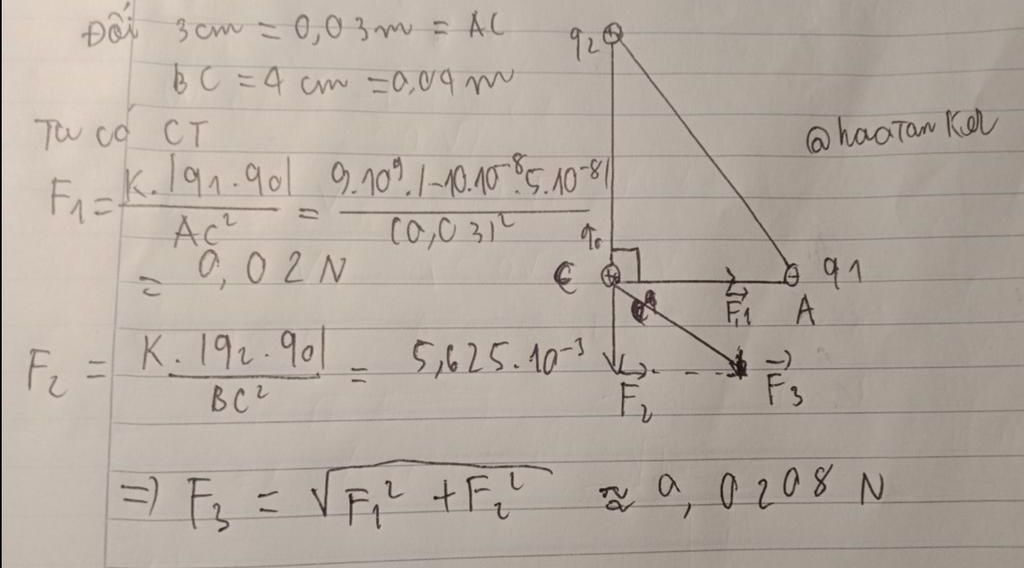 Đổi 3cm = 0,03m = AC
BC = 4 cm = 0,04m
Ta có CT
F1 = K.|q1.q0| / AC² = 9.10⁹.|-10.10⁻⁸.5.10⁻⁸| / (0,03)²
= 0,02N
F2 = K.|q2.q0| / BC² = 5,625.10⁻³
=> F3 = √F1² + F2² ≈ 0,0208 N
q2
@haoTanKer
q0
C
q1
F1
A
F2
F3